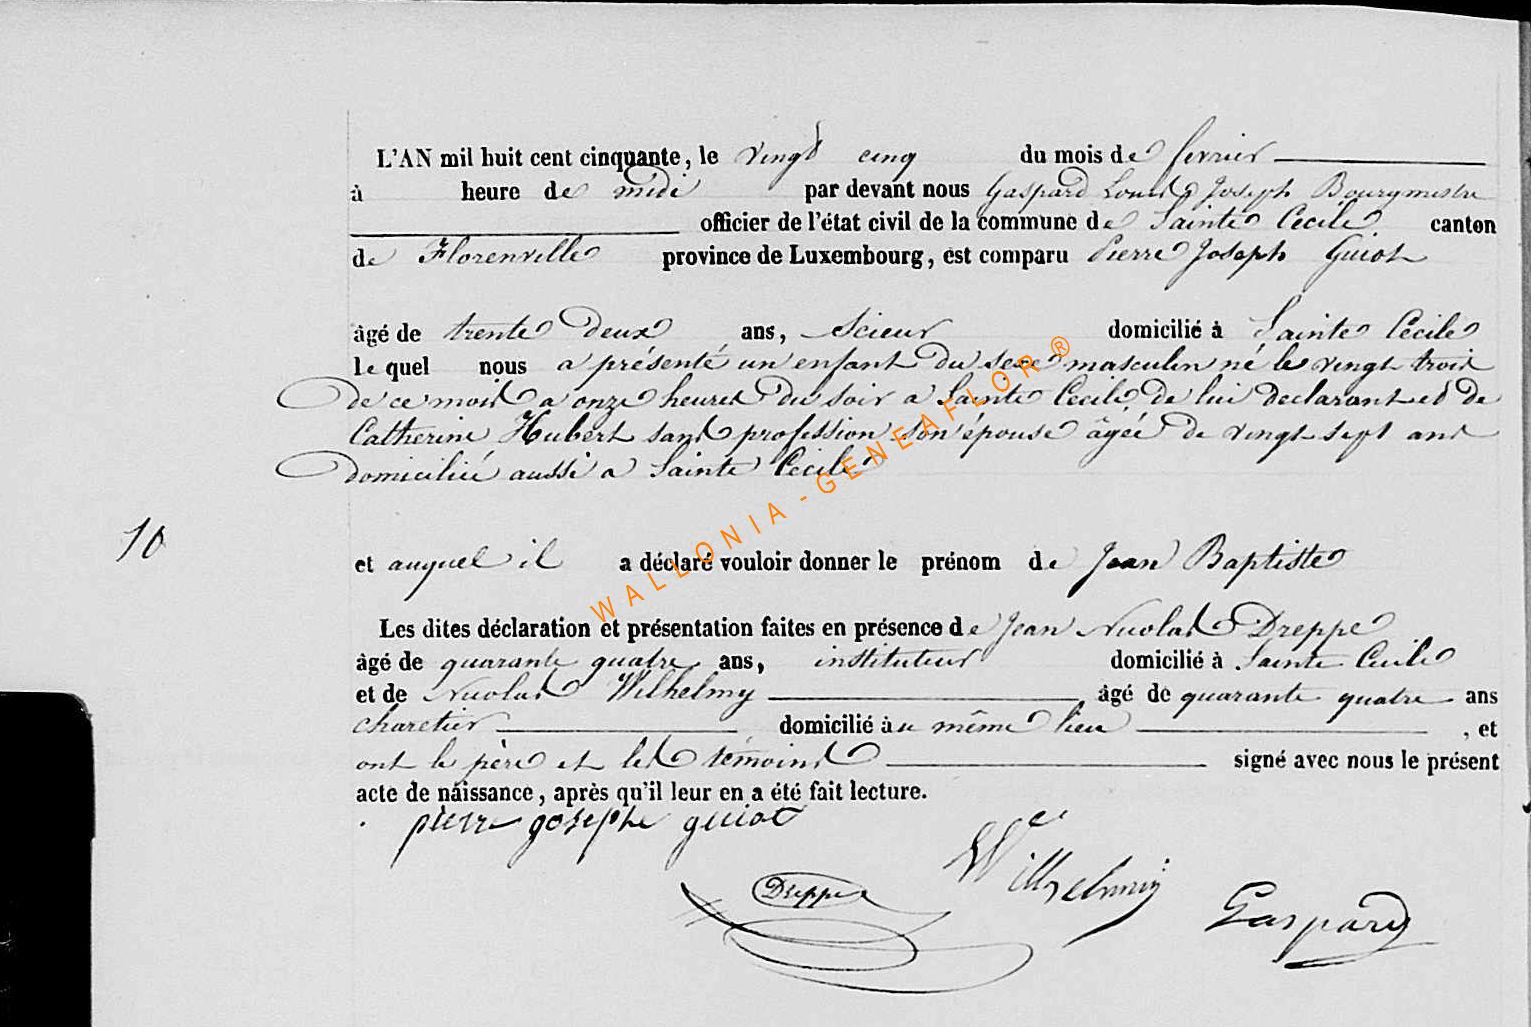 L'AN mil huit cent cinquante, le vingt cinq du mois de fevrier
à heure de midi par devant nous Gaspard Louis Joseph Bourgmestre
officier de l'état civil de la commune de Sainte Cecile canton
de Florenville province de Luxembourg, est comparu Pierre Joseph Guiot
âgé de trente deux ans, scieur domicilié à Sainte Cécile
le quel nous a présenté un enfant du sexe masculin né le vingt trois
de ce mois a onze heures du soir a Sainte Cecile de lui declarant et de
Catherine Hubert sans profession son épouse âgée de vingt sept ans
domiciliée aussi a Sainte Cecile
10
et auquel il a déclaré vouloir donner le prénom de Jean Baptiste
Les dites déclaration et présentation faites en présence de Jean Nicolas Dreppe
âgé de quarante quatre ans, instituteur domicilié à Sainte Cecile
et de Nicolas Wilhelmy âgé de quarante quatre ans
charetier domicilié au même lieu , et
ont le père et les témoins signé avec nous le présent
acte de naissance, après qu'il leur en a été fait lecture.
pierre gosephe guiot
Dreppe Wilhelmy Gaspard
WALLONIA - GENEAFLOR ®